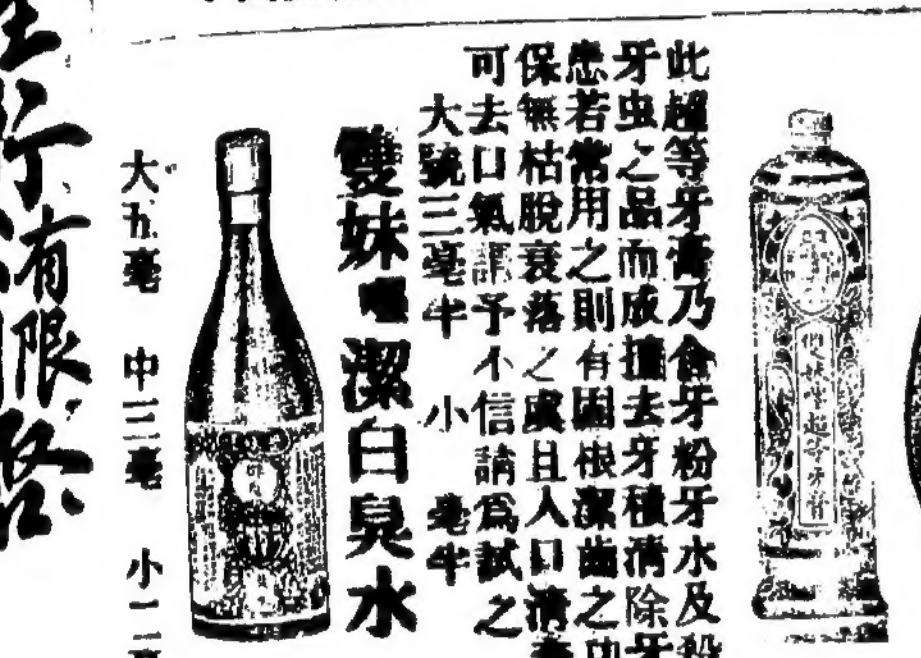 此超等牙膏乃含牙粉牙水及殺
牙虫之品而成擅去牙積清除牙
患若常用之則有固根潔齒之功
保無枯脫衰落之虞且人口清
可去口氣謂予不信請爲試之
大號三毫半 小 毫半
雙妹嚜潔白臭水
大五毫 中三毫 小一毫
行有限啓
雙妹嚜超等牙膏